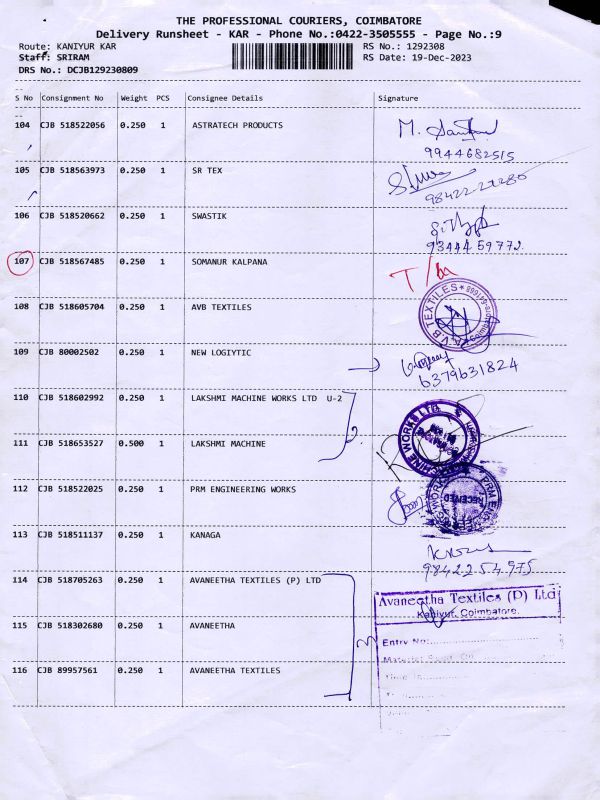 THE PROFESSIONAL COURIERS, COIMBATORE
Delivery Runsheet - KAR - Phone No.:0422-3505555 - Page No.:9
Route: KANIYUR KAR RS No.: 1292308
Staff: SRIRAM RS Date: 19-Dec-2023
DRS No.: DCJB129230809
S No Consignment No Weight PCS Consignee Details Signature
104 CJB 518522056 0.250 1 ASTRATECH PRODUCTS
9944682515
105 CJB 518563973 0.250 1 SR TEX
106 CJB 518520662 0.250 1 SWASTIK
93444 59772
107 CJB 518567485 0.250 1 SOMANUR KALPANA
108 CJB 518605704 0.250 1 AVB TEXTILES
A.V.B TEXTILES
109 CJB 80002502 0.250 1 NEW LOGIYTIC
6379631824
110 CJB 518602992 0.250 1 LAKSHMI MACHINE WORKS LTD U-2
111 CJB 518653527 0.500 1 LAKSHMI MACHINE
MACHINE WORKS LTD.
112 CJB 518522025 0.250 1 PRM ENGINEERING WORKS
RECEIVED
113 CJB 518511137 0.250 1 KANAGA
98422 54975
114 CJB 518705263 0.250 1 AVANEETHA TEXTILES (P) LTD
Avaneetha Textiles (P) Ltd
Kaniyur, Coimbatore.
115 CJB 518302680 0.250 1 AVANEETHA
Entry No:
116 CJB 89957561 0.250 1 AVANEETHA TEXTILES